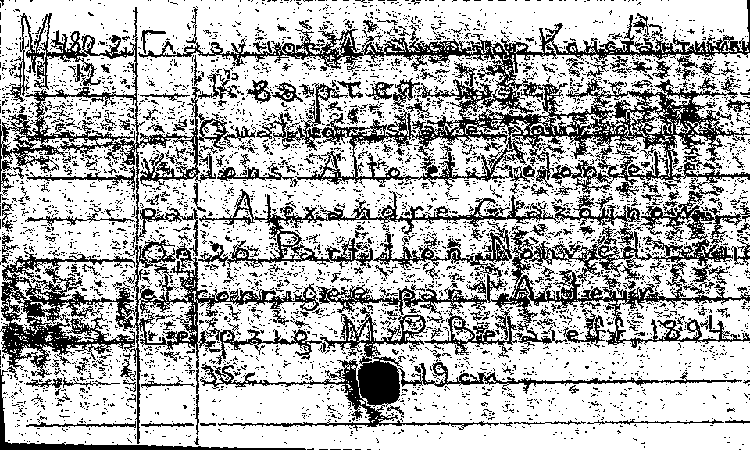 М 480-2 Глазунов Александр Константинович
12 Квартет
Quatuor slave pour deux
Violons, Alto et Violoncelle
par Alexandre Glazounow.
Op. 26 Partition. Nouv. éd. revue
et corrigée par l'Auteur.
Leipzig, M.P. Belaieff, 1894.
35 с. 19 см.